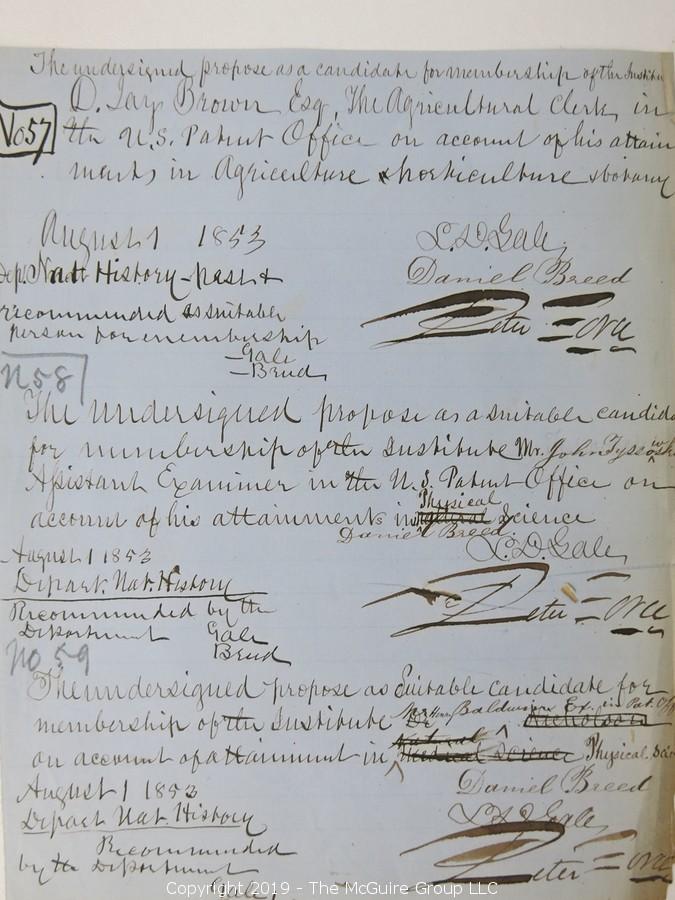 The undersigned propose as a candidate for membership of the Institu
D. Jay Brown Esq, The Agricultural Clerk, in
No 57
the U.S. Patent Office on account of his attain
ments in Agriculture & horticulture & botany
August 1 1853
L.D. Gale,
Dep. Nat History
Daniel Breed
recommended as suitable
person for membership
Peter
- Gale
- Breed
N 58
The undersigned propose as a suitable candida
for membership of the Institute Mr. John Tyssowsk
Assistant Examiner in the U.S. Patent Office on
Physical
account of his attainments in Science
Daniel Breed
August 1 1853
L.D. Gale,
Depart. Nat. History
Recommended by the
Peter
Department
Gale
Breed
No. 59
The undersigned propose as Suitable candidate for
Baldwin Ex. in Pat. Off
membership of the Institute Dr Nicholson
Natural
on account of attainment in Medical Science Physical Sci
August 1 1853
Daniel Breed
Depart Nat History
L D Gale,
Recommended
by the Department
Peter
Gale,
Copyright 2019 - The McGuire Group LLC